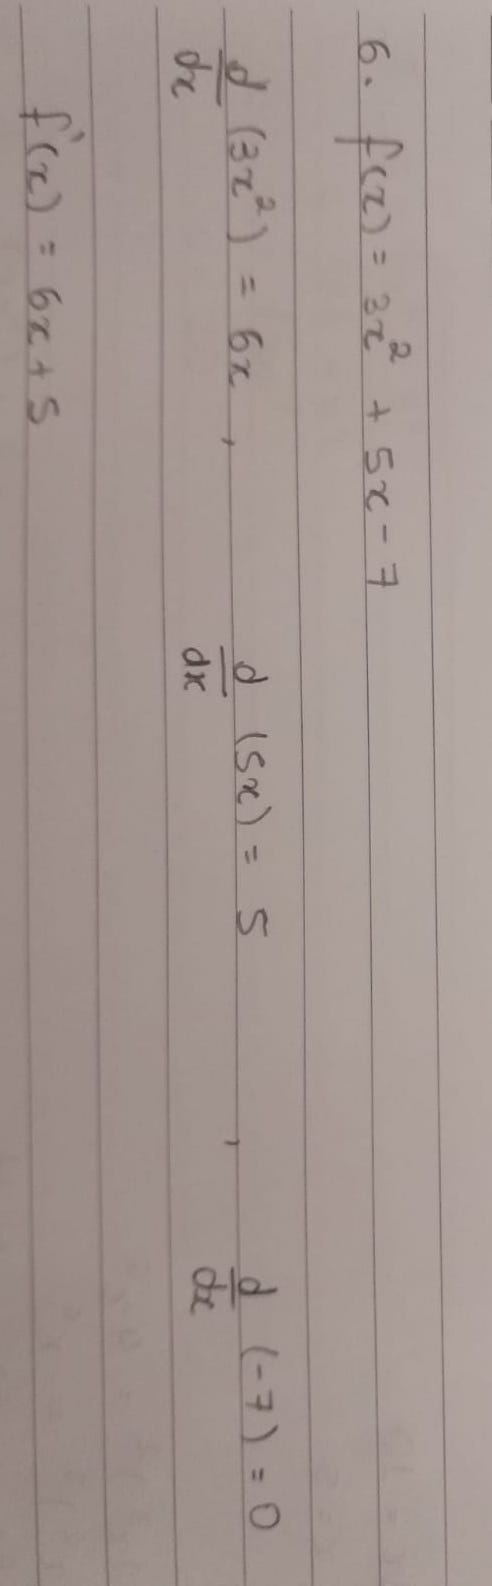 6. f(x) = 3x² + 5x - 7
d/dx (3x²) = 6x , d/dx (5x) = 5 , d/dx (-7) = 0
f'(x) = 6x + 5